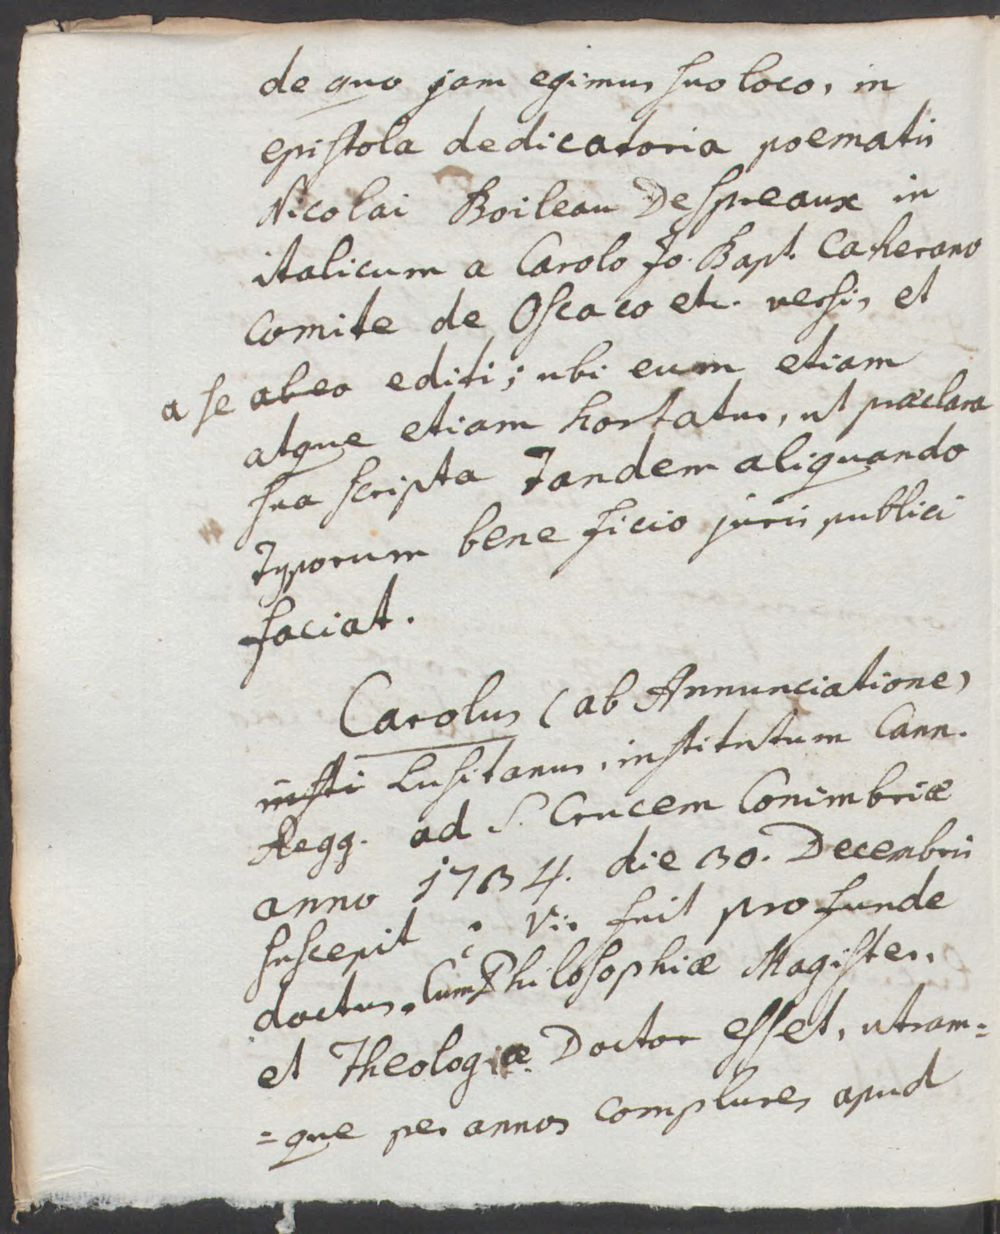 de quo jam egimus suo loco, in
epistola dedicatoria poematis
Nicolai Boileau Despreaux in
italicum a Carolo Jo. Bapt. Catherano
Comite de Oscaco etc. versi, et
a se ab eo editi; ubi eum etiam
atque etiam hortatur, ut præclara
sua scripta tandem aliquando
Typorum beneficio juris publici
faciat.
Carolus (ab Annunciatione)
Lusitanus, institutum Cann.
Regg. ad S. Crucem Conimbriæ
anno 1734. die 30. Decembris
suscepit : Vir fuit profunde
doctus. Cum Philosophiæ Magister,
et Theologiæ Doctor esset, utram=
=que per annos complures apud